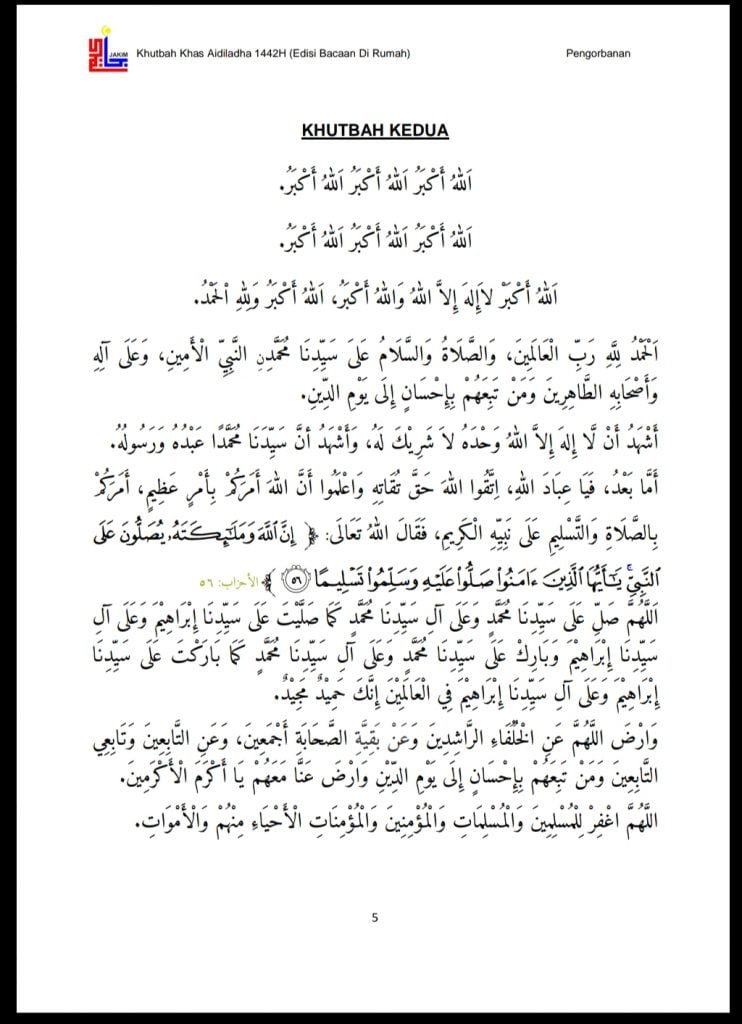 JAKIM
Khutbah Khas Aidiladha 1442H (Edisi Bacaan Di Rumah) Pengorbanan
KHUTBAH KEDUA
اَللهُ أَكْبَرُ اَللهُ أَكْبَرُ اَللهُ أَكْبَرُ.
اَللهُ أَكْبَرُ اَللهُ أَكْبَرُ اَللهُ أَكْبَرُ.
اَللهُ أَكْبَرْ لاَإِلهَ إِلاَّ اللهُ وَاللهُ أَكْبَرُ، اَللهُ أَكْبَرُ وَلِلهِ الْحَمْدُ.
اَلْحَمْدُ لِلَّهِ رَبِّ الْعَالَمِينَ، وَالصَّلَاةُ وَالسَّلَامُ عَلَى سَيِّدِنَا مُحَمَّدِنِ النَّبِيِّ الْأَمِينِ، وَعَلَى آلِهِ
وَأَصْحَابِهِ الطَّاهِرِينَ وَمَنْ تَبِعَهُمْ بِإِحْسَانٍ إِلَى يَوْمِ الدِّينِ.
أَشْهَدُ أَنْ لَّا إِلهَ إِلاَّ اللهُ وَحْدَهُ لاَ شَرِيْكَ لَهُ، وَأَشْهَدُ أَنَّ سَيِّدَنَا مُحَمَّدًا عَبْدُهُ وَرَسُولُهُ.
أَمَّا بَعْدُ، فَيَا عِبَادَ اللهِ، اِتَّقُوا اللهَ حَقَّ تُقَاتِهِ وَاعْلَمُوا أَنَّ اللهَ أَمَرَكُمْ بِأَمْرٍ عَظِيمٍ، أَمَرَكُمْ
بِالصَّلَاةِ وَالتَّسْلِيمِ عَلَى نَبِيِّهِ الْكَرِيمِ، فَقَالَ اللهُ تَعَالَى: ﴿ إِنَّ ٱللَّهَ وَمَلَٰٓئِكَتَهُۥ يُصَلُّونَ عَلَى
ٱلنَّبِيِّۚ يَٰٓأَيُّهَا ٱلَّذِينَ ءَامَنُواْ صَلُّواْ عَلَيْهِ وَسَلِّمُواْ تَسْلِيمًا ٥٦ ﴾ الأحزاب: ٥٦
اَللَّهُمَّ صَلِّ عَلَى سَيِّدِنَا مُحَمَّدٍ وَعَلَى آلِ سَيِّدِنَا مُحَمَّدٍ كَمَا صَلَّيْتَ عَلَى سَيِّدِنَا إِبْرَاهِيْمَ وَعَلَى آلِ
سَيِّدِنَا إِبْرَاهِيْمَ وَبَارِكْ عَلَى سَيِّدِنَا مُحَمَّدٍ وَعَلَى آلِ سَيِّدِنَا مُحَمَّدٍ كَمَا بَارَكْتَ عَلَى سَيِّدِنَا
إِبْرَاهِيْمَ وَعَلَى آلِ سَيِّدِنَا إِبْرَاهِيْمَ فِي الْعَالَمِيْنَ إِنَّكَ حَمِيْدٌ مَجِيْدٌ.
وَارْضَ اللَّهُمَّ عَنِ الْخُلَفَاءِ الرَّاشِدِينَ وَعَنْ بَقِيَّةِ الصَّحَابَةِ أَجْمَعِينَ، وَعَنِ التَّابِعِينَ وَتَابِعِي
التَّابِعِينَ وَمَنْ تَبِعَهُمْ بِإِحْسَانٍ إِلَى يَوْمِ الدِّيْنِ وَارْضَ عَنَّا مَعَهُمْ يَا أَكْرَمَ الْأَكْرَمِينَ.
اللَّهُمَّ اغْفِرْ لِلْمُسْلِمِينَ وَالْمُسْلِمَاتِ وَالْمُؤْمِنِينَ وَالْمُؤْمِنَاتِ الْأَحْيَاءِ مِنْهُمْ وَالْأَمْوَاتِ.
5